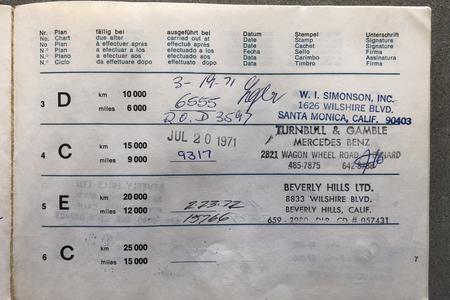 Nr. Plan fällig bei ausgeführt bei Datum Stempel Unterschrift
No. Chart due after carried out at Date Stamp Signature
N° Plan à effectuer après effectué après Date Cachet Signature
N.° Plan a efectuar a los efectuado a los Fecha Sello Firma
N.° Plano a efectuar aos efectuado aos Data Carimbo Assinatura
N.° Ciclo da effettuare dopo effettuato dopo Data Timbro Firma
3 D km 10 000
miles 6 000
3-19-71
6555
R.O.D 3597
W. I. SIMONSON, INC.
1626 WILSHIRE BLVD.
SANTA MONICA, CALIF. 90403
4 C km 15 000
miles 9 000
JUL 20 1971
9317
TURNBULL & GAMBLE
MERCEDES BENZ
2821 WAGON WHEEL ROAD
485-7875
5 E km 20 000
miles 12 000
2-23-72
15766
BEVERLY HILLS LTD.
8833 WILSHIRE BLVD.
BEVERLY HILLS, CALIF.
659-2980 DLR CD # 057431
6 C km 25 000
miles 15 000
7